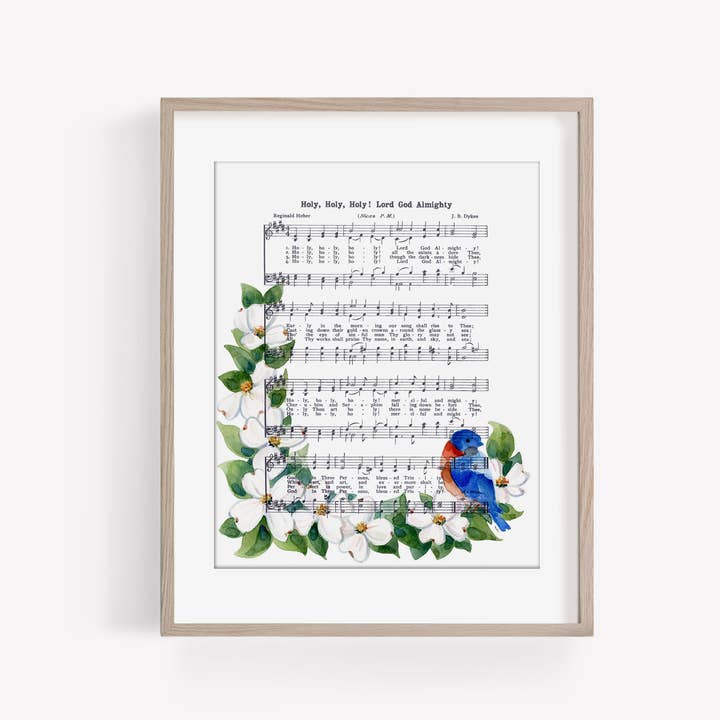 Holy, Holy, Holy! Lord God Almighty
Reginald Heber (Nicæa P.M.) J. B. Dykes
1. Ho - ly, ho - ly, ho - ly! Lord God Al - might - y!
2. Ho - ly, ho - ly, ho - ly! all the saints a - dore Thee,
3. Ho - ly, ho - ly, ho - ly! though the dark - ness hide Thee,
4. Ho - ly, ho - ly, ho - ly! Lord God Al - might - y!
Ear - ly in the morn - ing our song shall rise to Thee;
Cast - ing down their gold - en crowns a - round the glass - y sea;
Tho' the eye of sin - ful man Thy glo - ry may not see;
All Thy works shall praise Thy name, in earth, and sky, and sea;
Ho - ly, ho - ly, ho - ly! mer - ci - ful and might - y!
Cher - u - bim and Ser - a - phim fall - ing down be - fore Thee,
On - ly Thou art ho - ly; there is none be - side Thee,
Ho - ly, ho - ly, ho - ly! mer - ci - ful and might - y!
God in Three Per - sons, bless - ed Trin - i - ty!
and art, and ev - er - more shall be
Per - fect in power, in love and pur - i - ty.
God in Three Per - sons, bless - ed Trin - i - ty!